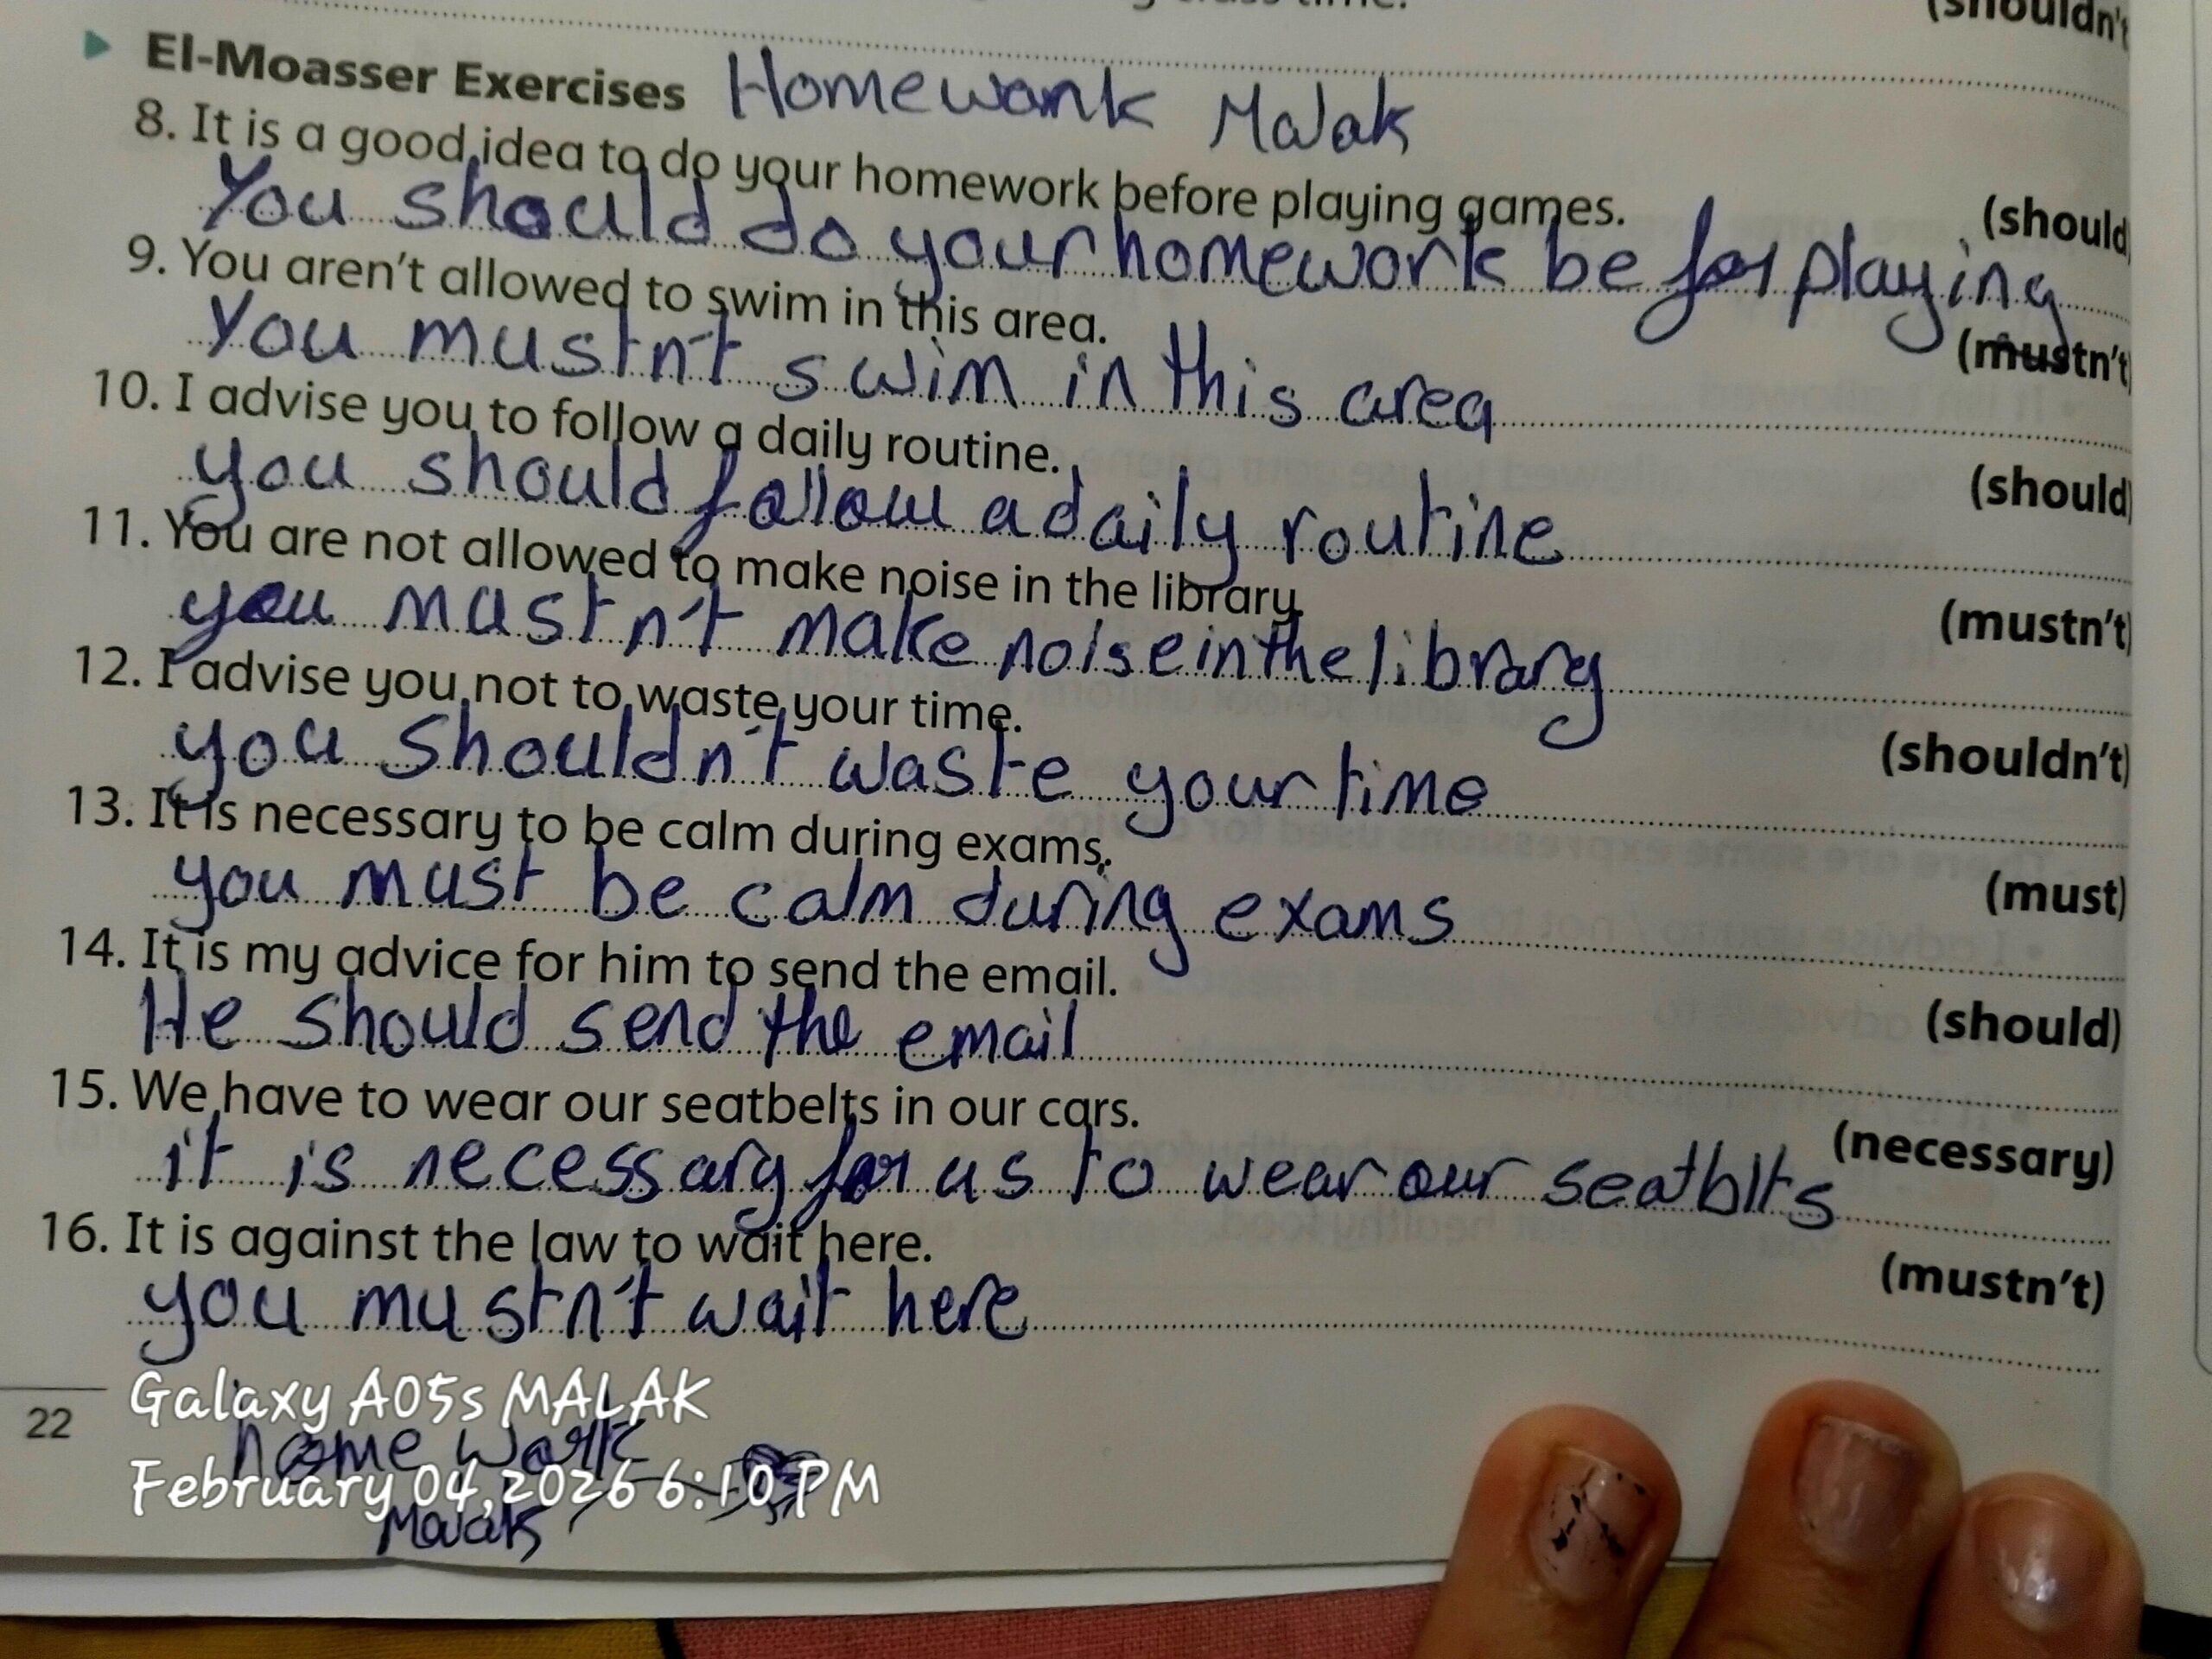 (shouldn't
▶ El-Moasser Exercises Homework Malak
8. It is a good idea to do your homework before playing games. (should
You should do your homework be for playing
9. You aren't allowed to swim in this area. (mustn't)
You mustn't swim in this area
10. I advise you to follow a daily routine. (should)
you should follow a daily routine
11. You are not allowed to make noise in the library. (mustn't)
you mustn't make noise in the library
12. I advise you not to waste your time. (shouldn't)
you shouldn't waste your time
13. It is necessary to be calm during exams. (must)
you must be calm during exams
14. It is my advice for him to send the email. (should)
He should send the email
15. We have to wear our seatbelts in our cars. (necessary)
it is necessary for us to wear our seatblts
16. It is against the law to wait here. (mustn't)
you mustn't wait here
22
Galaxy A05s MALAK
home work
February 04,2026 6:10 PM
Malak